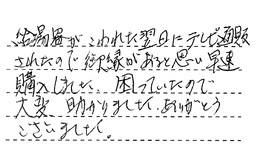 給湯器がこわれた翌日にテレビ通販
されたので御縁があると思い早速
購入しました。困っていたので
大変助かりました。ありがとう
ございました。